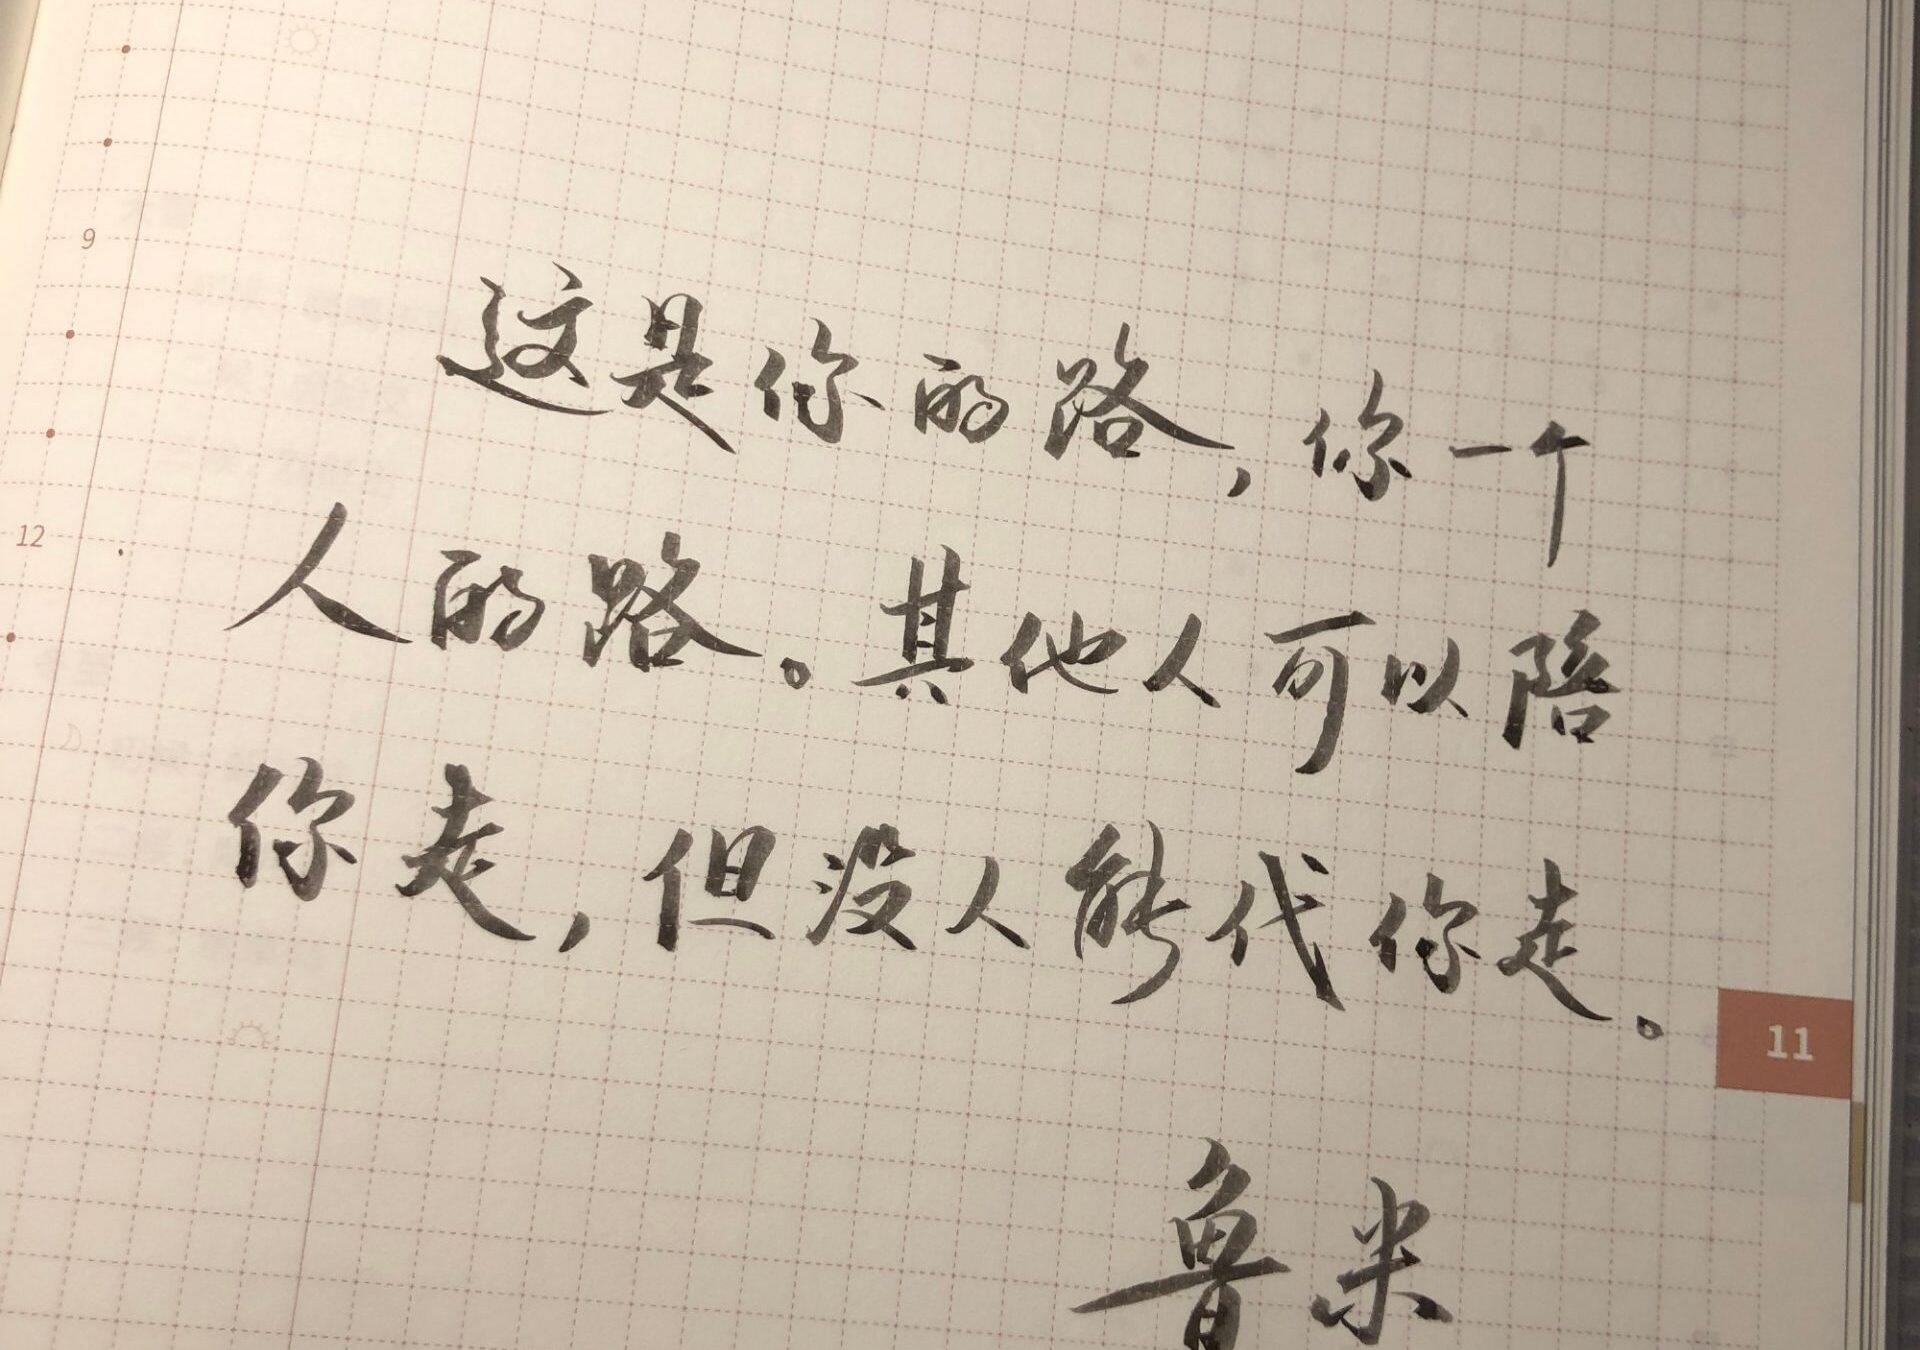 9
这是你的路，你一个
12
人的路。其他人可以陪
你走，但没人能代你走。
11
鲁米